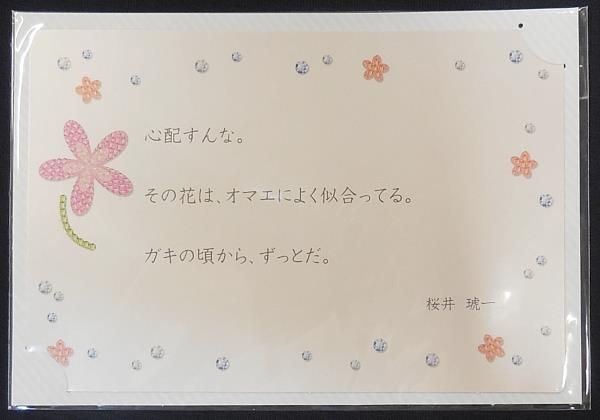 心配すんな。
その花は、オマエによく似合ってる。
ガキの頃から、ずっとだ。
桜井 琥一